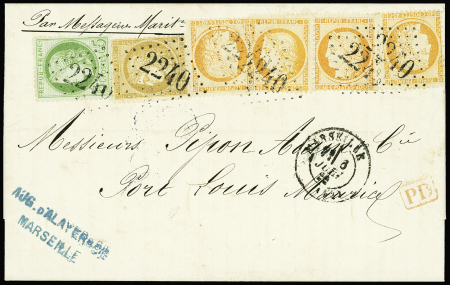 Par Messageries Marit.
REPUB. FRANC.
2240 2240 2240 2240 2240 2240
Messieurs Pipon Adam & Cie
Port Louis Maurice
MARSEILLE
PD
AUG. D'ALAYER & CIE
MARSEILLE